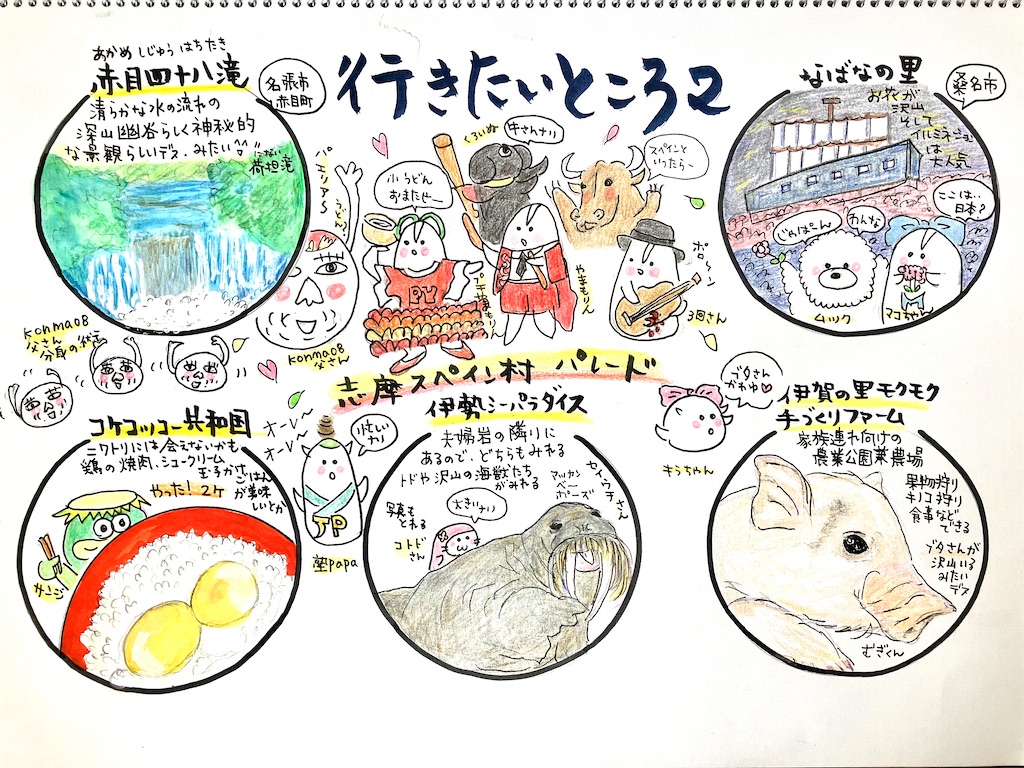 行きたいところ2
あかめ しじゅう はちたき
赤目四十八滝
名張市
赤目町
清らかな水の流れの
深山幽谷らしく神秘的
な景観らしいデス。みたい
荷担滝
なばなの里
桑名市
お花が
沢山
そして
イルミネーション
は
大人気
ここは…
日本?
じゃぱーん
わんな
ムック
マコちゃん
くろいぬ
牛さんナリ
スペインと
いったらー
小うどん
おまたせー
うどん
PY
やまもりん
ポローン
3週さん
konma08
父さん
konma08
父さん
分身の術
志摩スペイン村 パレード
コケコッコー共和国
ニワトリには会えないかも
鶏の焼肉、シュークリーム
玉子かけごはん
が美味
しいとか
やった!2ケ
オーレ〜
オーレ〜
忙しい
ナリ
JP
塾papa
伊勢シーパラダイス
夫婦岩の隣りに
あるので、どちらもみれる
トドや沢山の海獣たち
がみれる
写真も
とれる
大きいナリ
コトド
さん
アッカン
ベー
ポーズ
セイウチさん
ブタさん
かわゆ
キラちゃん
伊賀の里モクモク
手づくりファーム
家族連れ向けの
農業公園菜農場
果物狩り
キノコ狩り
食事など
できる
ブタさんが
沢山いる
みたい
デス
むぎくん